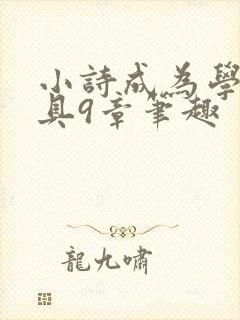 小詩成為學
具9章筆趣
龍九嘯